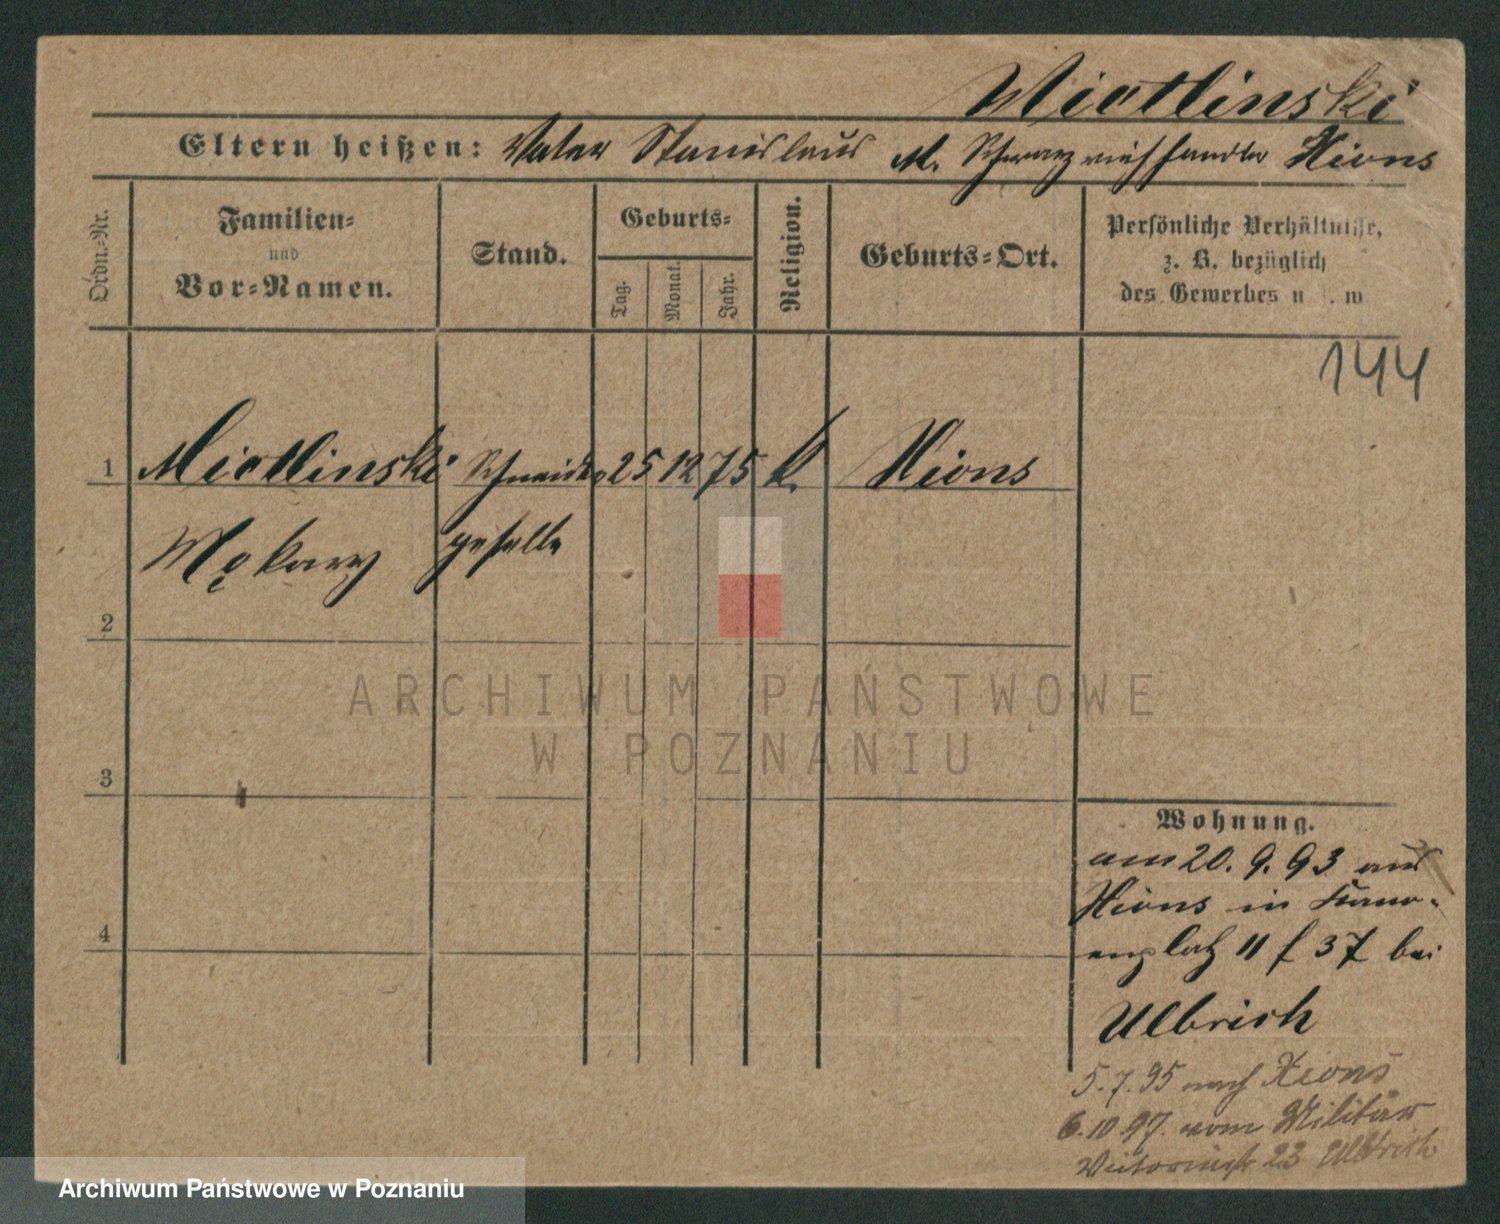 Miotlinski
Eltern heißen: Vater Stanislaus M. Schwarzviehhandler Xions
Ordn.-Nr.
Familien-
und
Vor-Namen.
Stand.
Geburts-
Tag.
Monat.
Jahr.
Religion.
Geburts-Ort.
Persönliche Verhältnisse,
z. B. bezüglich
des Gewerbes u. s. w
144
1 Miotlinski Schneider 25 12 75 k. Xions
Mąkary geselle
2
3
4
Wohnung.
am 20. 9. 93 aus
Xions in
platz 11 f 37 bei
Ulbrich
5.7.95 nach Xions
6.10 97. vom Militär
23 Ulbrich
ARCHIWUM PAŃSTWOWE
W POZNANIU
Archiwum Państwowe w Poznaniu